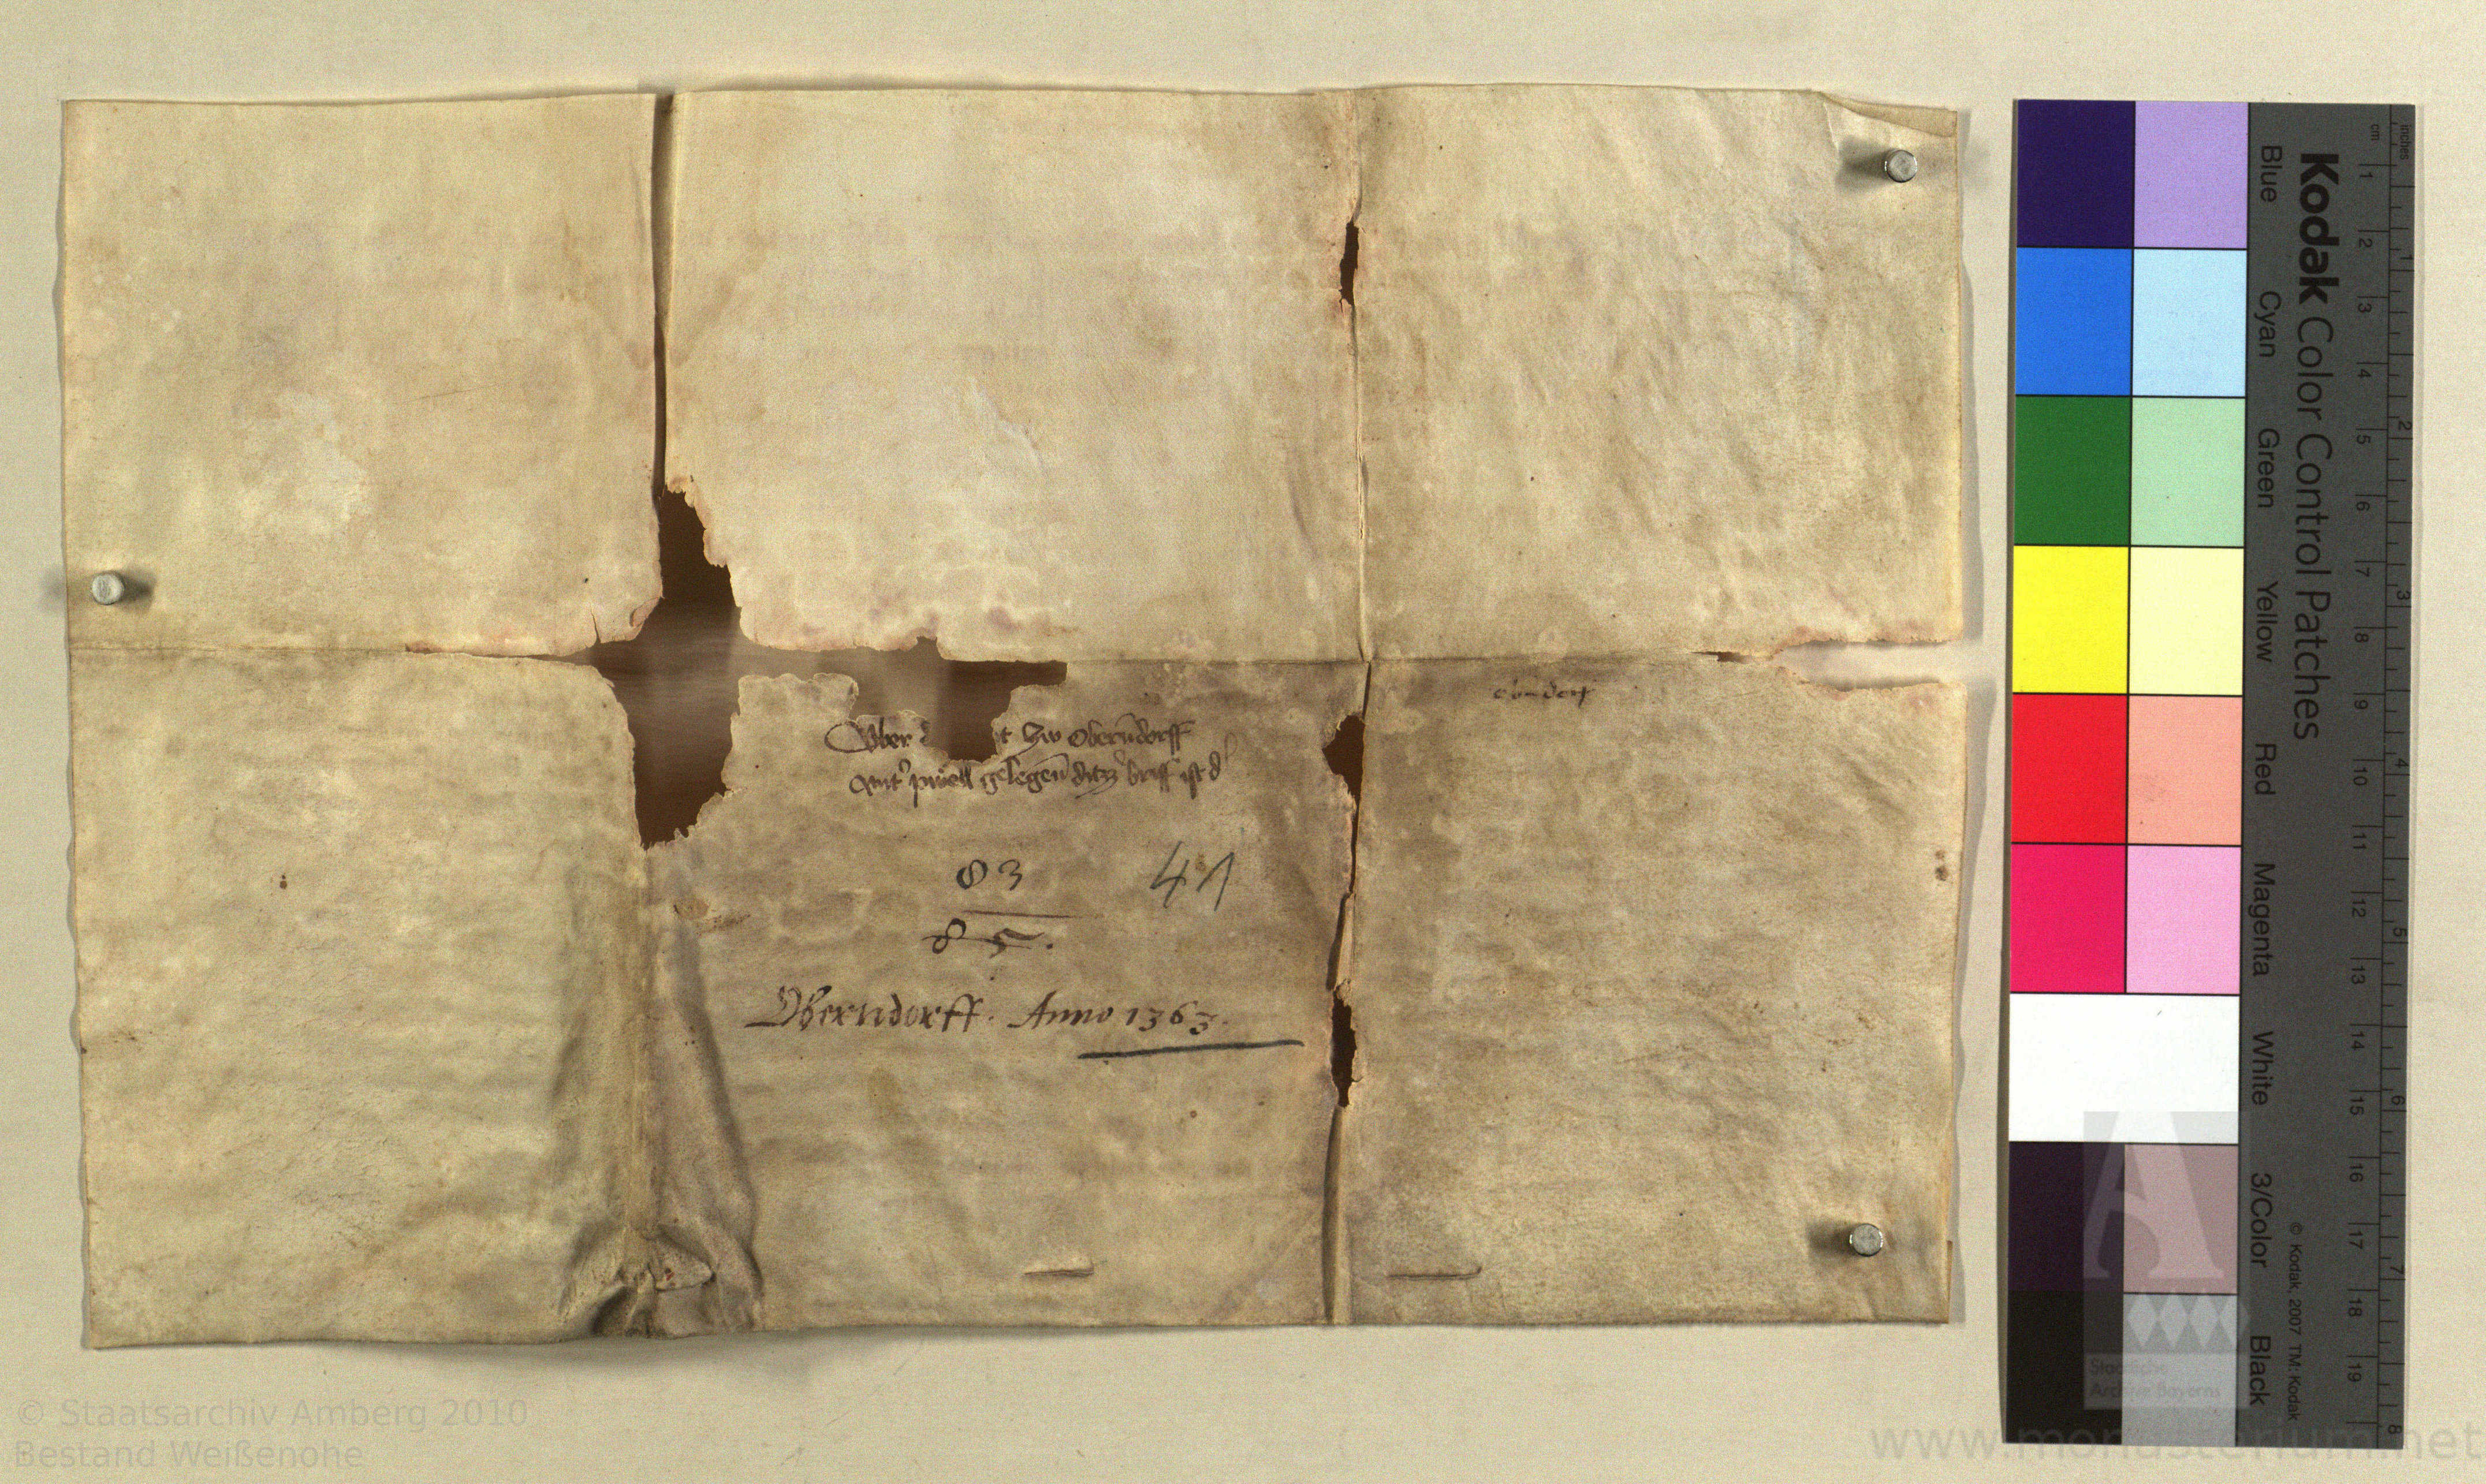 obendorf
Vber d t hw Oberndorff
gelegen ditz briff ist d
83
41
85.
Oberndorff. Anno 1363.
Kodak Color Control Patches
Blue Cyan Green Yellow Red Magenta White 3/Color Black
© Kodak, 2007 TM: Kodak
cm 1 2 3 4 5 6 7 8 9 10 11 12 13 14 15 16 17 18 19
inches 1 2 3 4 5 6 7 8
Staatliche
Archive Bayerns
© Staatsarchiv Amberg 2010
Bestand Weißenohe
www.monasterium.net